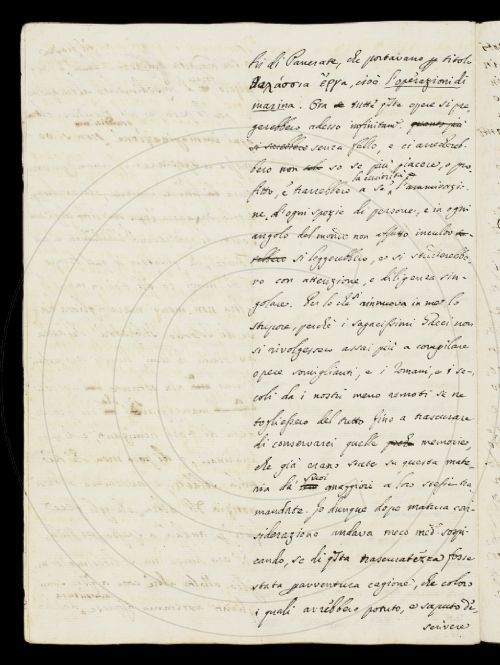 tri di Pancrate, che portavano p titolo
θαλάσσια ἔργα, cioè l'operazioni di
marina. Ora tutte q.sta opere si pre
gierebbero adesso infinitam.te quanto più
si sarebbero senza fallo, e ci arrecereb-
bero non so se più piacere, o pro
fitto, e trarrebbero a se la curiosità e l'ammirazio-
ne d'ogni spezie di persone, e in ogni
angolo del mondo non affatto incolto
si leggerebbero, e si studierebbe
ro con attenzione, e diligenza sin-
golare. Per lo che rinnuova in me lo
stupore, perchè i sagacissimi Greci non
si rivolgessero assai più a compilare
opere somiglianti, e i Romani, e i se-
coli da i nostri meno remoti se ne
togliessero del tutto fino a trascurare
di conservarci quelle memorie,
che già erano state su questa mate
ria da' suoi maggiori a loro stessi tra
mandate. Io dunque dopo matura con
siderazione andava meco med.o sospi
cando, se di q.sta trascuratezza fosse
stata p avventura cagione, che coloro
i quali avrebbero potuto, e saputo de
scrivere